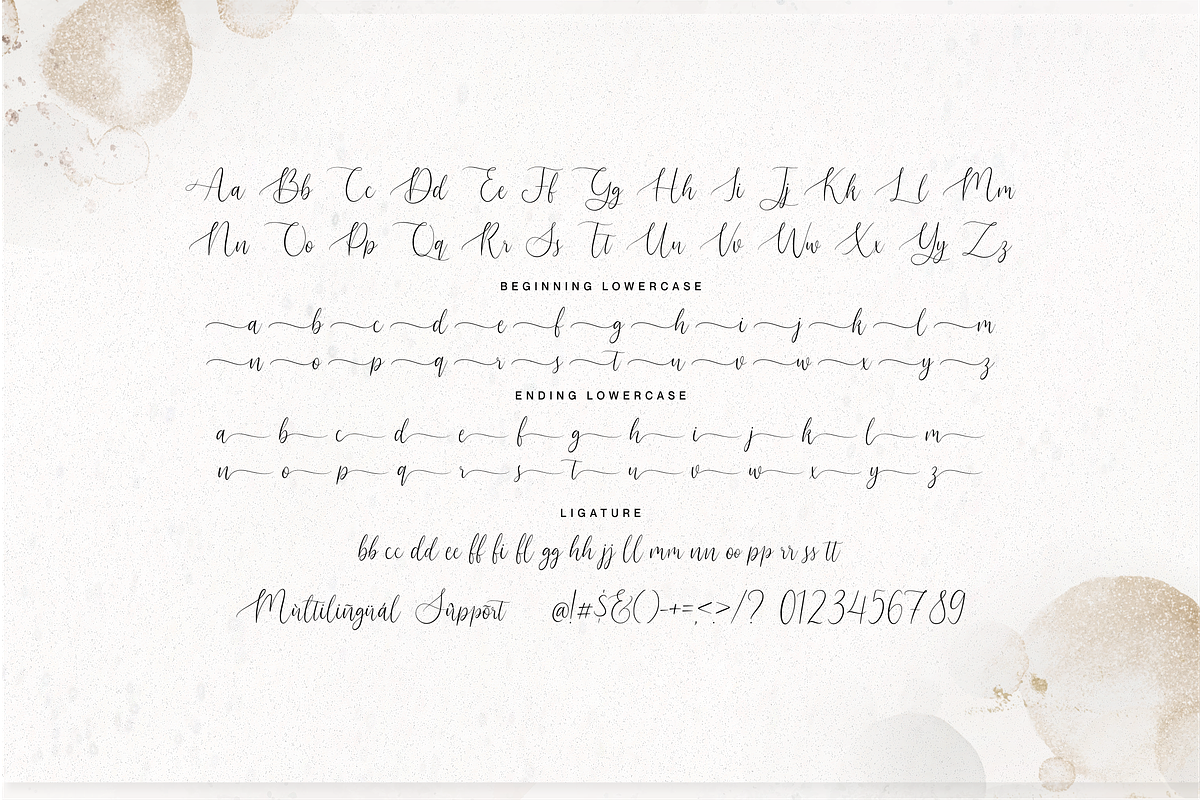 Aa Bb Cc Dd Ee Ff Gg Hh Ii Jj Kk Ll Mm
Nn Oo Pp Qq Rr Ss Tt Uu Vv Ww Xx Yy Zz
BEGINNING LOWERCASE
a b c d e f g h i j k l m
n o p q r s t u v w x y z
ENDING LOWERCASE
a b c d e f g h i j k l m
n o p q r s t u v w x y z
LIGATURE
bb cc dd ee ff fi fl gg hh jj ll mm nn oo pp rr ss tt
Mùltilingüál Sûppōrt @!#$&()-+=<>/? 0123456789